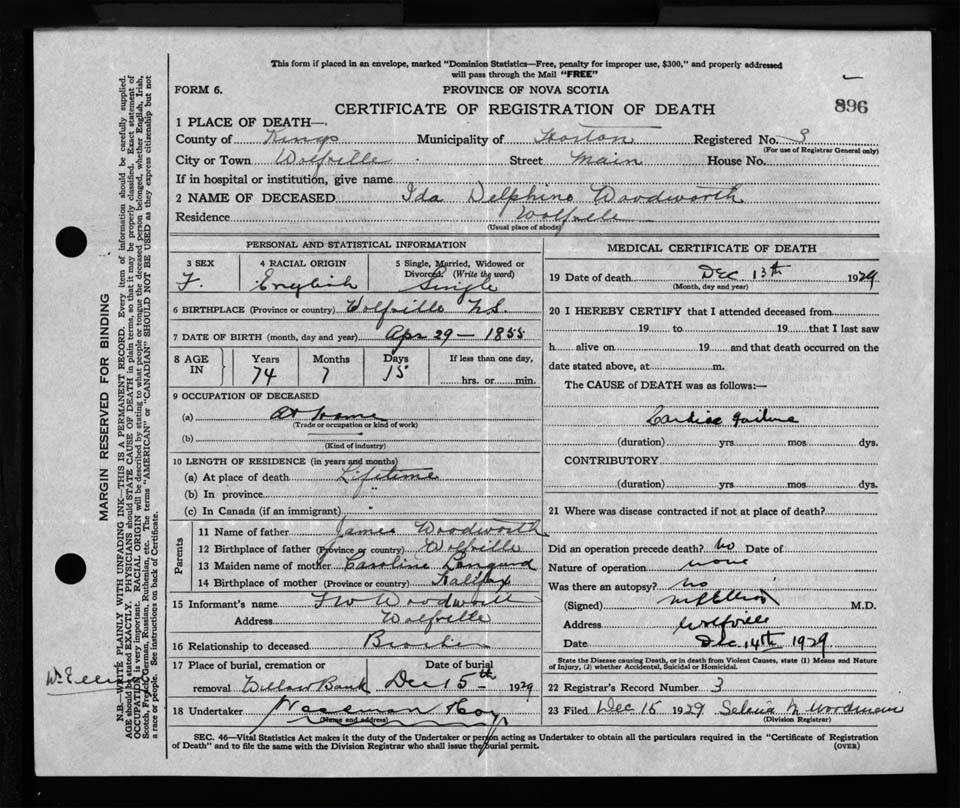 This form if placed in an envelope, marked "Dominion Statistics—Free, penalty for improper use, $300," and properly addressed
will pass through the Mail "FREE"
FORM 6.
PROVINCE OF NOVA SCOTIA
CERTIFICATE OF REGISTRATION OF DEATH
896
1 PLACE OF DEATH—
County of Kings Municipality of Horton Registered No. 3
(For use of Registrar General only)
City or Town Wolfville Street Main House No.
If in hospital or institution, give name
2 NAME OF DECEASED Ida Delphine Woodworth
Residence Wolfville
(Usual place of abode)
PERSONAL AND STATISTICAL INFORMATION
3 SEX 4 RACIAL ORIGIN 5 Single, Married, Widowed or
Divorced. (Write the word)
F. English Single
6 BIRTHPLACE (Province or country) Wolfville N.S.
7 DATE OF BIRTH (month, day and year) Apr 29 - 1855
8 AGE IN Years Months Days If less than one day,
74 7 15 hrs. or min.
9 OCCUPATION OF DECEASED
(a) At home
(Trade or occupation or kind of work)
(b)
(Kind of industry)
10 LENGTH OF RESIDENCE (in years and months)
(a) At place of death Lifetime
(b) In province "
(c) In Canada (if an immigrant)
Parents
11 Name of father James Woodworth
12 Birthplace of father (Province or country) Wolfville
13 Maiden name of mother Caroline
14 Birthplace of mother (Province or country) Halifax
15 Informant's name F W Woodworth
Address Wolfville
16 Relationship to deceased Brother
17 Place of burial, cremation or Date of burial
removal Willow Bank Dec 15th 1929
18 Undertaker Freeman
(Name and address)
MEDICAL CERTIFICATE OF DEATH
19 Date of death Dec 13th 1929
(Month, day and year)
20 I HEREBY CERTIFY that I attended deceased from
19 to 19 that I last saw
h alive on 19 and that death occurred on the
date stated above, at m.
The CAUSE of DEATH was as follows:—
Cardiac failure
(duration) yrs. mos. dys.
CONTRIBUTORY
(duration) yrs. mos. dys.
21 Where was disease contracted if not at place of death?
Did an operation precede death? No Date of
Nature of operation none
Was there an autopsy? No
(Signed) M.D.
Address Wolfville
Date Dec. 14th 1929
State the Disease causing Death, or in death from Violent Causes, state (1) Means and Nature
of Injury, (2) whether Accidental, Suicidal or Homicidal.
22 Registrar's Record Number 3
23 Filed Dec 15 1929
(Division Registrar)
SEC. 46—Vital Statistics Act makes it the duty of the Undertaker or person acting as Undertaker to obtain all the particulars required in the "Certificate of Registration
of Death" and to file the same with the Division Registrar who shall issue the burial permit. (OVER)
MARGIN RESERVED FOR BINDING
N.B.—WRITE PLAINLY WITH UNFADING INK—THIS IS A PERMANENT RECORD. Every item of information should be carefully supplied.
AGE should be stated EXACTLY. PHYSICIANS should STATE CAUSE OF DEATH in plain terms, so that it may be properly classified. Exact statement of
OCCUPATION is very important. RACIAL ORIGIN will be described by stating to what people or tongue the deceased person belonged, whether English, Irish,
Scotch, French, German, Russian, Ruthenian, etc. The terms "AMERICAN" or "CANADIAN" SHOULD NOT BE USED as they express citizenship but not
a race or people. See instructions on back of Certificate.